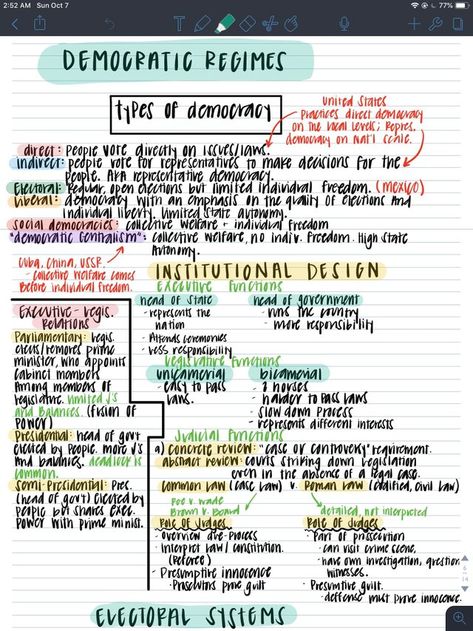 2:52 AM Sun Oct 7
77%
DEMOCRATIC REGIMES
types of democracy
United States
Practices direct democracy
on the local levels; Repres.
democracy on Nat'l scale.
direct: People vote directly on issues/laws.
indirect: people vote for representatives to make decisions for the
people. AKA representative democracy.
Electoral: Regular, open elections but limited individual freedom. (Mexico)
liberal: democracy with an emphasis on the quality of elections and
individual liberty. limited state autonomy.
Social democracies: collective welfare + individual freedom
"democratic centralism": collective welfare, no indiv. freedom. High State
Autonomy.
Cuba, China, USSR.
- collective welfare comes
before individual freedom.
INSTITUTIONAL DESIGN
Executive functions
head of State
- represents the
nation
- Attends ceremonies
- less responsibility
head of government
- runs the country
- more responsibility
Legislative functions
unicameral
- easy to pass
laws.
bicameral
- 2 houses
- harder to pass laws
- slow down process
- represents different interests
Executive-legis.
relations
Parliamentary: legis.
elects/removes prime
minister, who appoints
cabinet members
among members of
legislature. limited J's
and Balances. (fusion of
power)
Presidential: head of govt
elected by people. more J's
and balances. deadlock is
common.
Semi-Presidential: Pres.
(head of govt) elected by
people but shares exec.
power with prime minis.
Judicial functions
a) concrete review: "case or controversy" requirement.
abstract review: courts striking down legislation
even in the absence of a legal case.
common law (case law) v. Roman law (codified, civil law)
Roe v. Wade
Brown v. Board
detailed, not interpreted
Role of Judges
- overview due-process
- interpret law / constitution.
(referee)
- Presumptive innocence
- Prosecutors prove guilt
Role of Judges
- Part of prosecution
- can visit crime scene,
- have own investigation, question
witnesses.
- Presumptive guilt.
- deffense must prove innocence.
ELECTORAL SYSTEMS
6
14